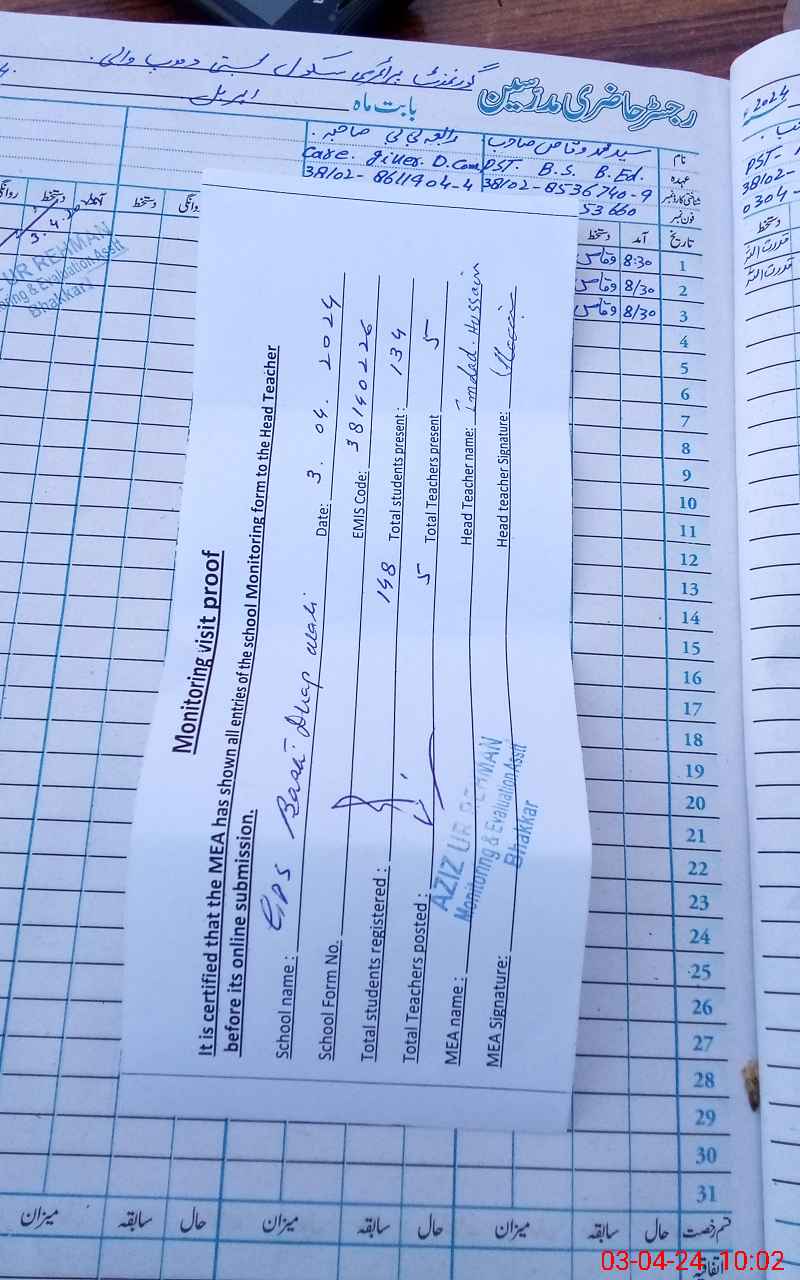 گورنمنٹ پرائمری سکول بستی دھپ والی
رجسٹر حاضری مدرسین
بابت ماہ اپریل
2024
نام
سید محمد وقاص صاحب
رابعہ بی بی صاحبہ
عہدہ
PST- B.S. B.Ed.
Care. giver. D.Com
شناختی کارڈ نمبر
38102-8536740-9
38102-8611904-4
فون نمبر
53660
PST-
38102-
0304-
تاریخ
آمد
دستخط
روانگی
دستخط
آمد
دستخط
روانگی
دستخط
1 8:30 وقاص
2 8/30 وقاص
3 8/30 وقاص
4
5
6
7
8
9
10
11
12
13
14
15
16
17
18
19
20
21
22
23
24
25
26
27
28
29
30
31
قسم رخصت حال سابقہ میزان حال سابقہ میزان حال سابقہ میزان
اتفاقیہ
3.4.
UR REHMAN
oring & Evaluation Asstt
Bhakkar
Monitoring visit proof
It is certified that the MEA has shown all entries of the school Monitoring form to the Head Teacher
before its online submission.
School name: GPS Basti Dhap wali Date: 3.04.2024
School Form No. EMIS Code: 38140226
Total students registered: 148 Total students present: 134
Total Teachers posted: 5 Total Teachers present 5
MEA name: Head Teacher name: Imdad Hussain
MEA Signature: Head teacher Signature:
AZIZ UR REHMAN
Monitoring & Evaluation Asstt
Bhakkar
03-04-24 10:02